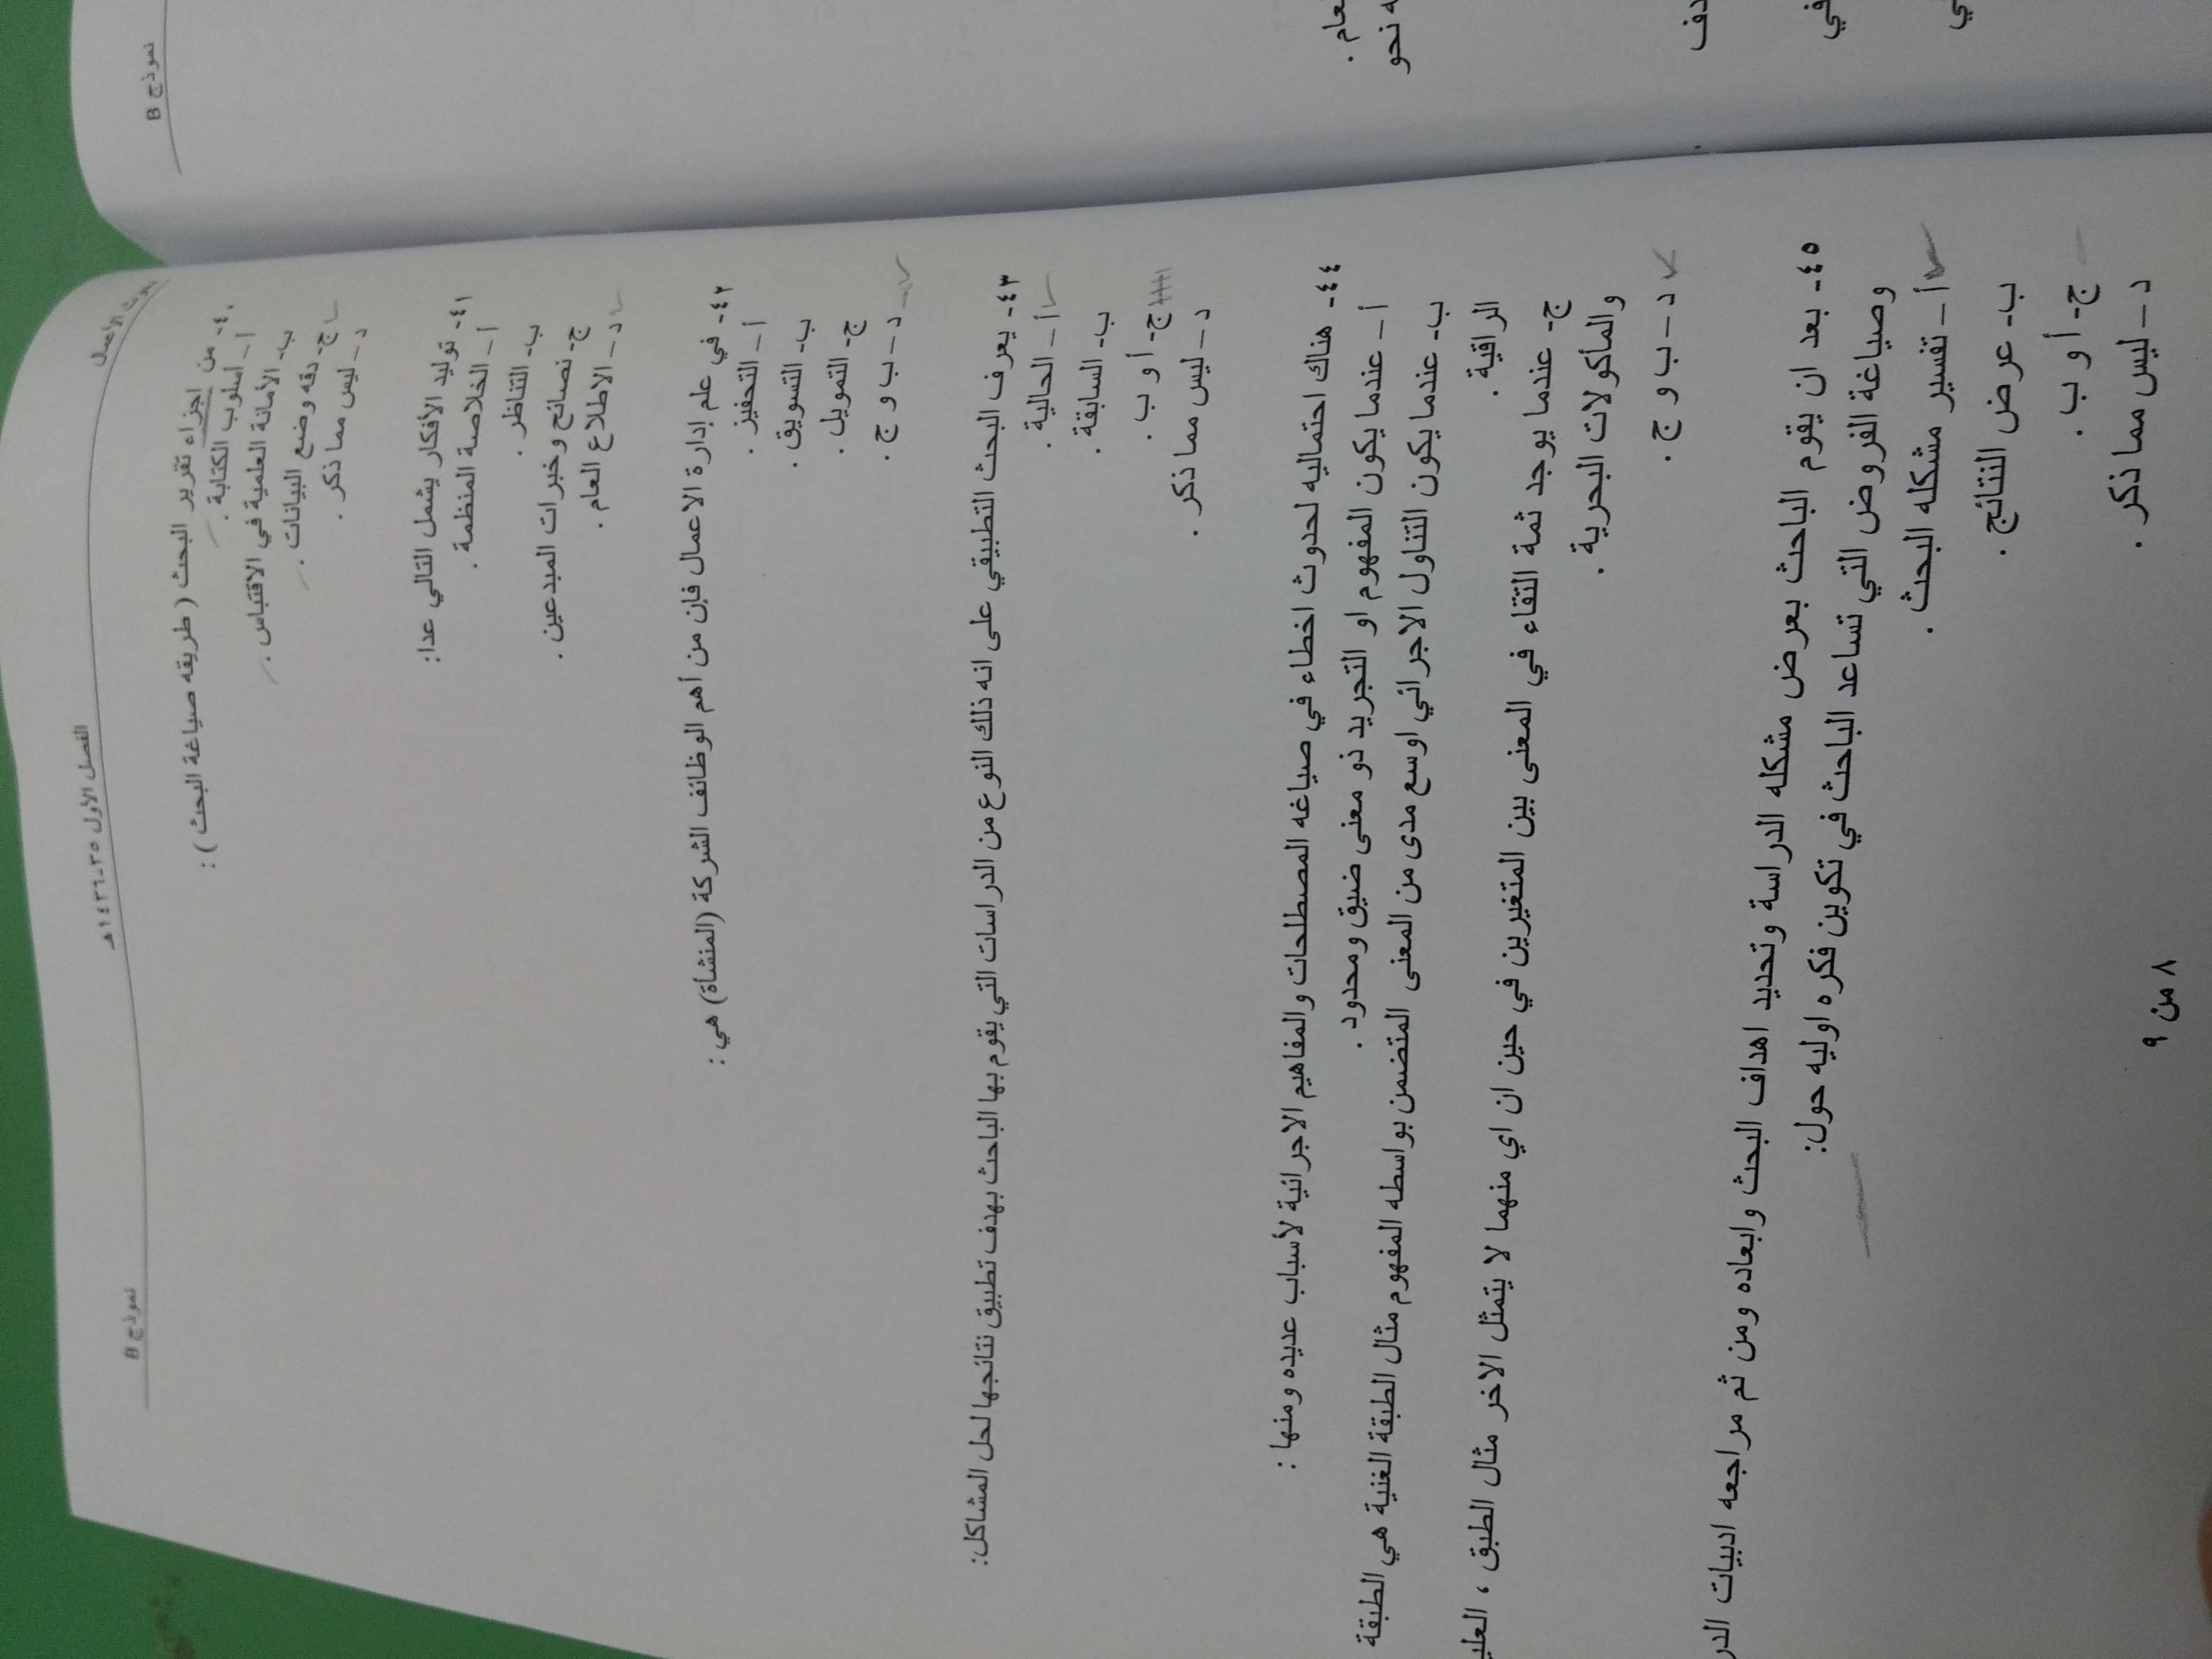 نموذج B
الفصل الأول ٣٥-١٤٣٦هـ
نموذج B
٤٠- من اجزاء تقرير البحث ( طريقه صياغة البحث ) :
أ – أسلوب الكتابة .
ب- الأمانة العلمية في الاقتباس .
ج- دقه وضع البيانات .
د – ليس مما ذكر .
٤١- توليد الأفكار يشمل التالي عدا:
أ – الخلاصة المنظمة .
ب- التناظر .
ج- نصائح وخبرات المبدعين .
د – الاطلاع العام .
٤٢- في علم إدارة الاعمال فإن من أهم الوظائف الشركة (المنشأة) هي :
أ – التحفيز .
ب- التسويق .
ج- التمويل .
د – ب و ج .
٤٣- يعرف البحث التطبيقي على انه ذلك النوع من الدراسات التي يقوم بها الباحث بهدف تطبيق نتائجها لحل المشاكل:
أ – الحالية .
ب- السابقة .
ج- أ و ب .
د – ليس مما ذكر .
٤٤- هناك احتماليه لحدوث اخطاء في صياغه المصطلحات والمفاهيم الاجرائية لأسباب عديده ومنها :
أ – عندما يكون المفهوم او التجريد ذو معنى ضيق ومحدود .
ب- عندما يكون التناول الاجرائي اوسع مدى من المعنى المتضمن بواسطه المفهوم مثال الطبقة الغنية هي الطبقة
الراقية .
ج- عندما يوجد ثمة التقاء في المعنى بين المتغيرين في حين ان اي منهما لا يتمثل الاخر مثال الطبق ،
والمأكولات البحرية .
د – ب و ج .
٤٥- بعد ان يقوم الباحث بعرض مشكله الدراسة وتحديد اهداف البحث وابعاده ومن ثم مراجعه ادبيات
وصياغة الفروض التي تساعد الباحث في تكوين فكره اوليه حول:
أ – تفسير مشكله البحث .
ب- عرض النتائج .
ج- أ و ب .
د – ليس مما ذكر .
٨ من ٩